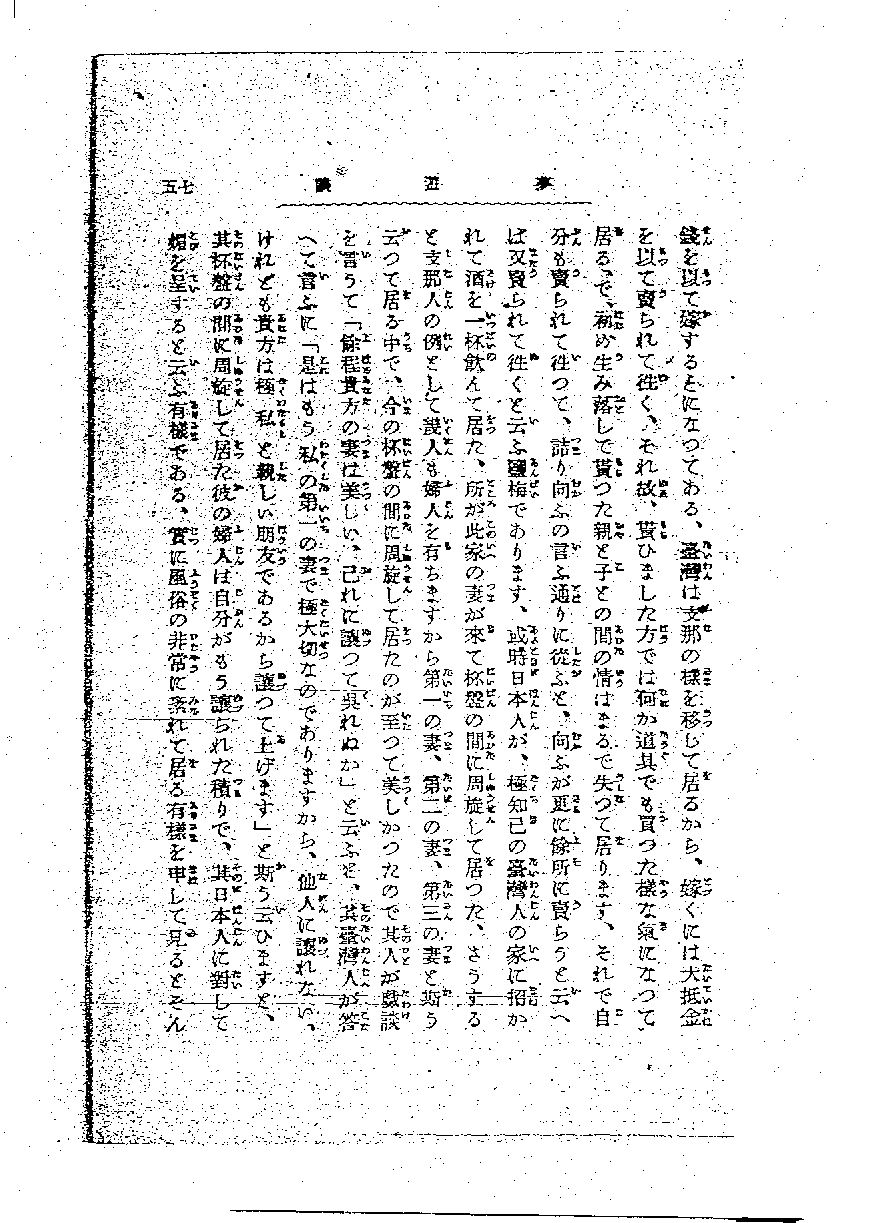 七五
錢を以て嫁することになつてある、臺灣は支那の樣を移して居るから、嫁くには大抵金
を以て賣られて徃く、それ故、貰ひました方では何か道具でも買つた樣な氣になつて
居る、で、初め生み落して貰つた親と子との間の情はまるで失つて居ります、それで自
分も賣られて徃つて、詰り向ふの言ふ通りに從ふと、向ふが更に餘所に賣らうと云へ
ば又賣られて徃くと云ふ鹽梅であります、或時日本人が、極知己の臺灣人の家に招か
れて酒を一杯飮んて居た、所が此家の妻が來て杯盤の間に周旋して居つた、さうする
と支那人の例として幾人も婦人を有ちますから第一の妻、第二の妻、第三の妻と斯う
云つて居る中で、今の杯盤の間に周旋して居たのが至つて美しかつたので其人が戲談
を言うて「餘程貴方の妻は美しい、己れに讓つて呉れぬか」と云ふと、其臺灣人が答
へて言ふに「是はもう私の第一の妻で極大切なのでありますから、他人に讓れない、
けれども貴方は極私と親しい朋友であるから讓つて上げます」と斯う云ひますと、
其杯盤の間に周旋して居た彼の婦人は自分がもう讓られた積りで、其日本人に對して
媚を呈すると云ふ有樣である、實に風俗の非常に紊れて居る有樣を申して見るとそん